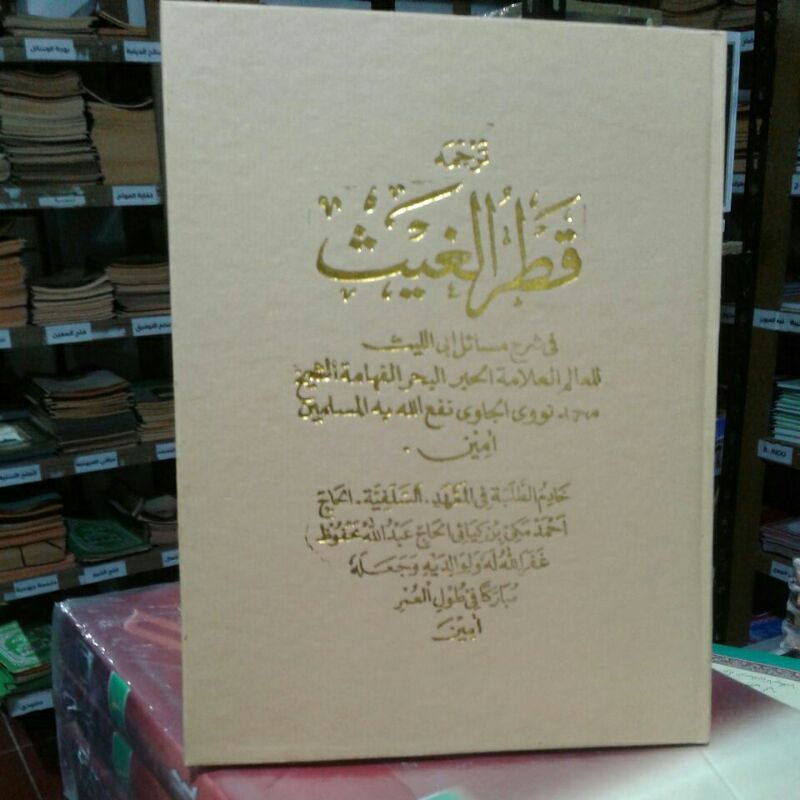 ترجمه
قَطْرُ الْغَيْث
في شرح مسائل ابى الليث
للعالم العلامة الحبر البحر الفهامة الشيخ
محمد نووى الجاوى نفع الله به المسلمين
أمين .
خَادِمُ الطَّلَبَة فِى الْمَعْهَدِ . السَّلَفِيَّة . الحَاج
اَحْمَدْ مَكِى بْن كِيَاهِى الحَاج عَبْدُ اللهْ مَحْفُوظْ
غَفَرَ اللهُ لَهُ وَلِوَالِدَيْهِ وَجَعَلَهُ
مُبَارَكًا فِى طُوْلِ الْعُمْرِ
أمِيْنَ
فتح المعين
كفاية العوام